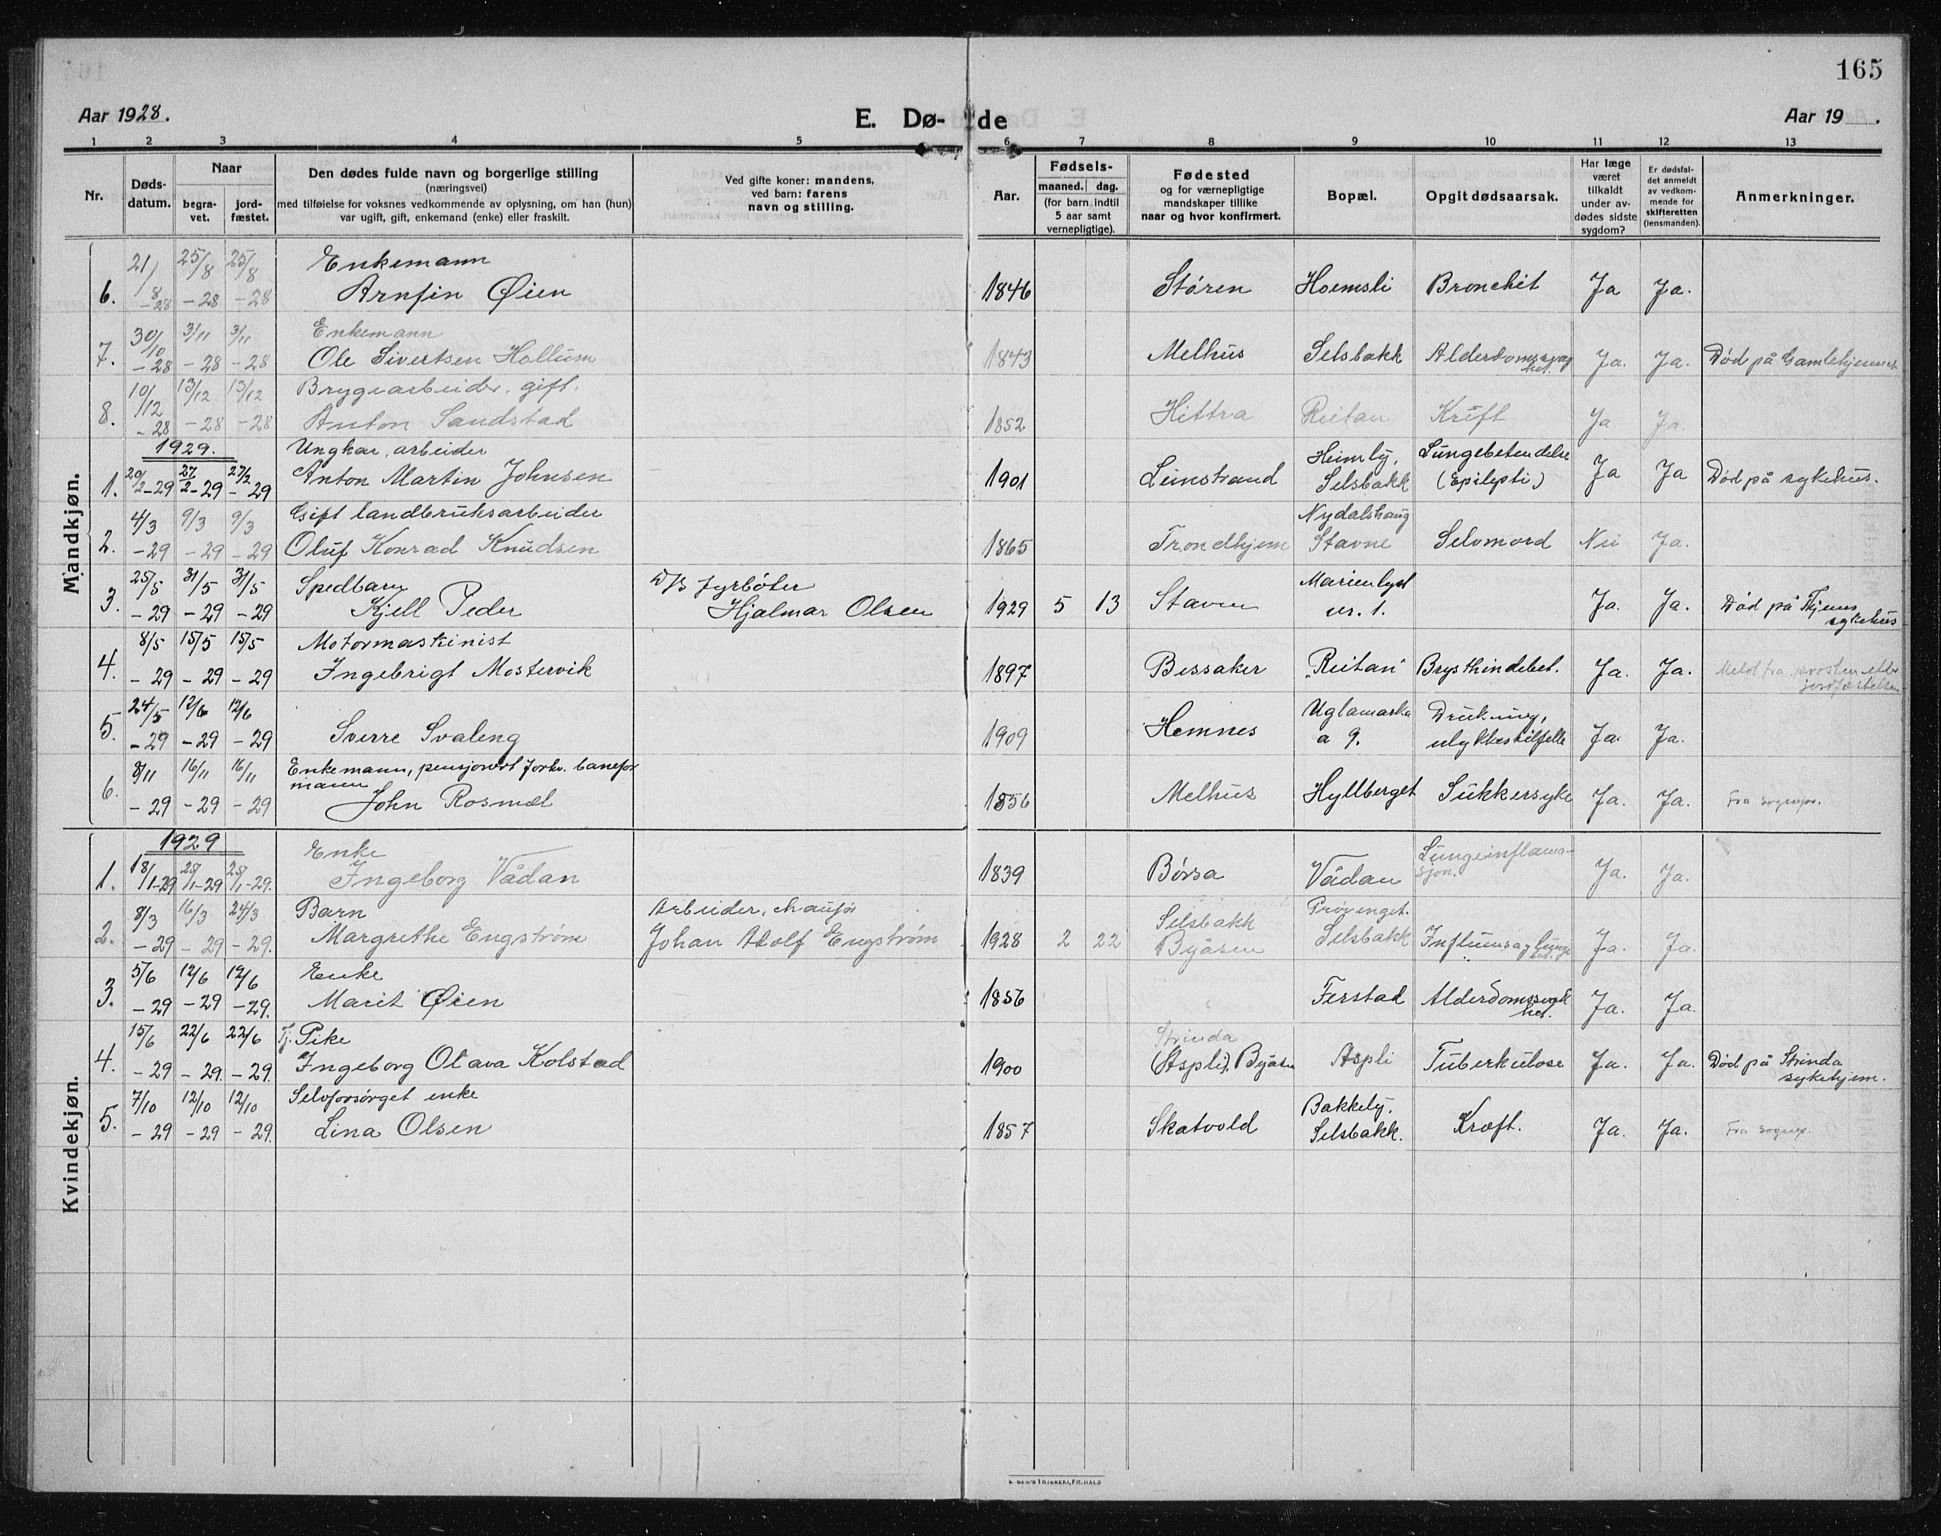 165
Aar 1928.
E. Dø- de
Aar 19 .
1 2 3 4 5 6 7 8 9 10 11 12 13
Nr.
Døds-
datum.
Naar
begra-
vet.
jord-
fæstet.
Den dødes fulde navn og borgerlige stilling
(næringsvei)
med tilføielse for voksnes vedkommende av oplysning, om han (hun)
var ugift, gift, enkemand (enke) eller fraskilt.
Ved gifte koner: mandens,
ved barn: farens
navn og stilling.
Aar.
Fødsels-
maaned. dag.
(for barn indtil
5 aar samt
vernepligtige).
Fødested
og for værnepligtige
mandskaper tillike
naar og hvor konfirmert.
Bopæl.
Opgit dødsaarsak.
Har læge
været
tilkaldt
under av-
dødes sidste
sygdom?
Er dødsfal-
det anmeldt
av vedkom-
mende for
skifteretten
(lensmanden).
Anmerkninger.
Mandkjøn.
21/8 25/8 25/8 Enkemann
6. -28 -28 -28 Arnfin Øien 1846 Støren Hoemsli Bronchit Ja Ja.
30/10 3/11 3/11 Enkemann
7. -28 -28 -28 Ole Sivertsen Hollum 1843 Melhus Selsbakk Alderdomssvag
het. Ja. Ja. Død på Gamlehjemmet
10/12 13/12 13/12 Brygearbeider, gift.
8. -28 -28 -28 Anton Sandstad 1852 Hittra Reitan Kræft Ja Ja.
1929. Ungkar, arbeider Heimly, Lungebetendelse
1. 20/2-29 27/2-29 27/2-29 Anton Martin Johnsen 1901 Leinstrand Selsbakk (Epilepsi) Ja Ja Død på sykehus.
4/3 9/3 9/3 Gift landbruksarbeider Nydalshaug
2. -29 -29 -29 Oluf Konrad Knudsen 1865 Trondhjem Stavne Selvmord Nei Ja.
25/5 31/5 31/5 Spedbarn fyrbøter Marienlyst
3. -29 -29 -29 Kjell Peder Hjalmar Olsen 1929 5 13 Staven nr. 1. Ja. Ja. Død på Thjems
sykehus
8/5 15/5 15/5 Motormaskinist
4. -29 -29 -29 Ingebrigt Mostervik 1897 Bessaker "Reitan" Brysthindebet. Ja. Ja. Meldt fra prosten etter
jordfæstelsen
24/5 12/6 12/6 Uglamarka Drukning,
5. -29 -29 -29 Sverre Svaleng 1909 Hemnes a 9. ulykkestilfelle Ja. Ja.
8/11 16/11 16/11 Enkemann, pensjonert forhv. banefor
mann
6. -29 -29 -29 John Rosmæl 1856 Melhus Hyllberget Sukkersyke Ja. Ja. Fra sognepr.
Kvindekjøn.
1929 Enke Lungeinflama-
sjon.
1. 18/1-29 25/1-29 25/1-29. Ingeborg Vådan 1839 Børsa Vådan Ja. Ja.
8/3 16/3 24/3 Barn Arbeider, chaufør Selsbakk Prøvenget.
2. -29 -29 -29. Margrethe Engstrøm Johan Adolf Engstrøm 1928 2 22 Byåsen Selsbakk Influensa og lunge
bet. Ja. Ja.
5/6 12/6 12/6 Enke
3. -29 -29 -29. Marit Øien 1856 Ferstad Alderdomssvak
het. Ja. Ja.
15/6 22/6 22/6 Tj. Pike Strinda
4. -29 -29. -29. Ingeborg Olava Kolstad 1900 (Aspli), Byåsen Aspli Tuberkulose Ja. Ja. Død på Strinda
sykehjem.
7/10 12/10 12/10 Selvforsørget enke Bakkely,
5. -29 -29 -29. Lina Olsen 1857 Skatvold Selsbakk. Kræft. Ja. Ja. Fra sognepr.